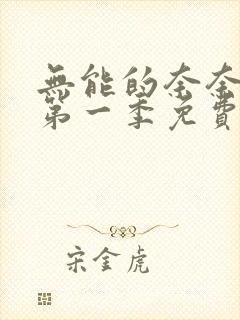 無能的奈奈
第一季免費
宋金虎